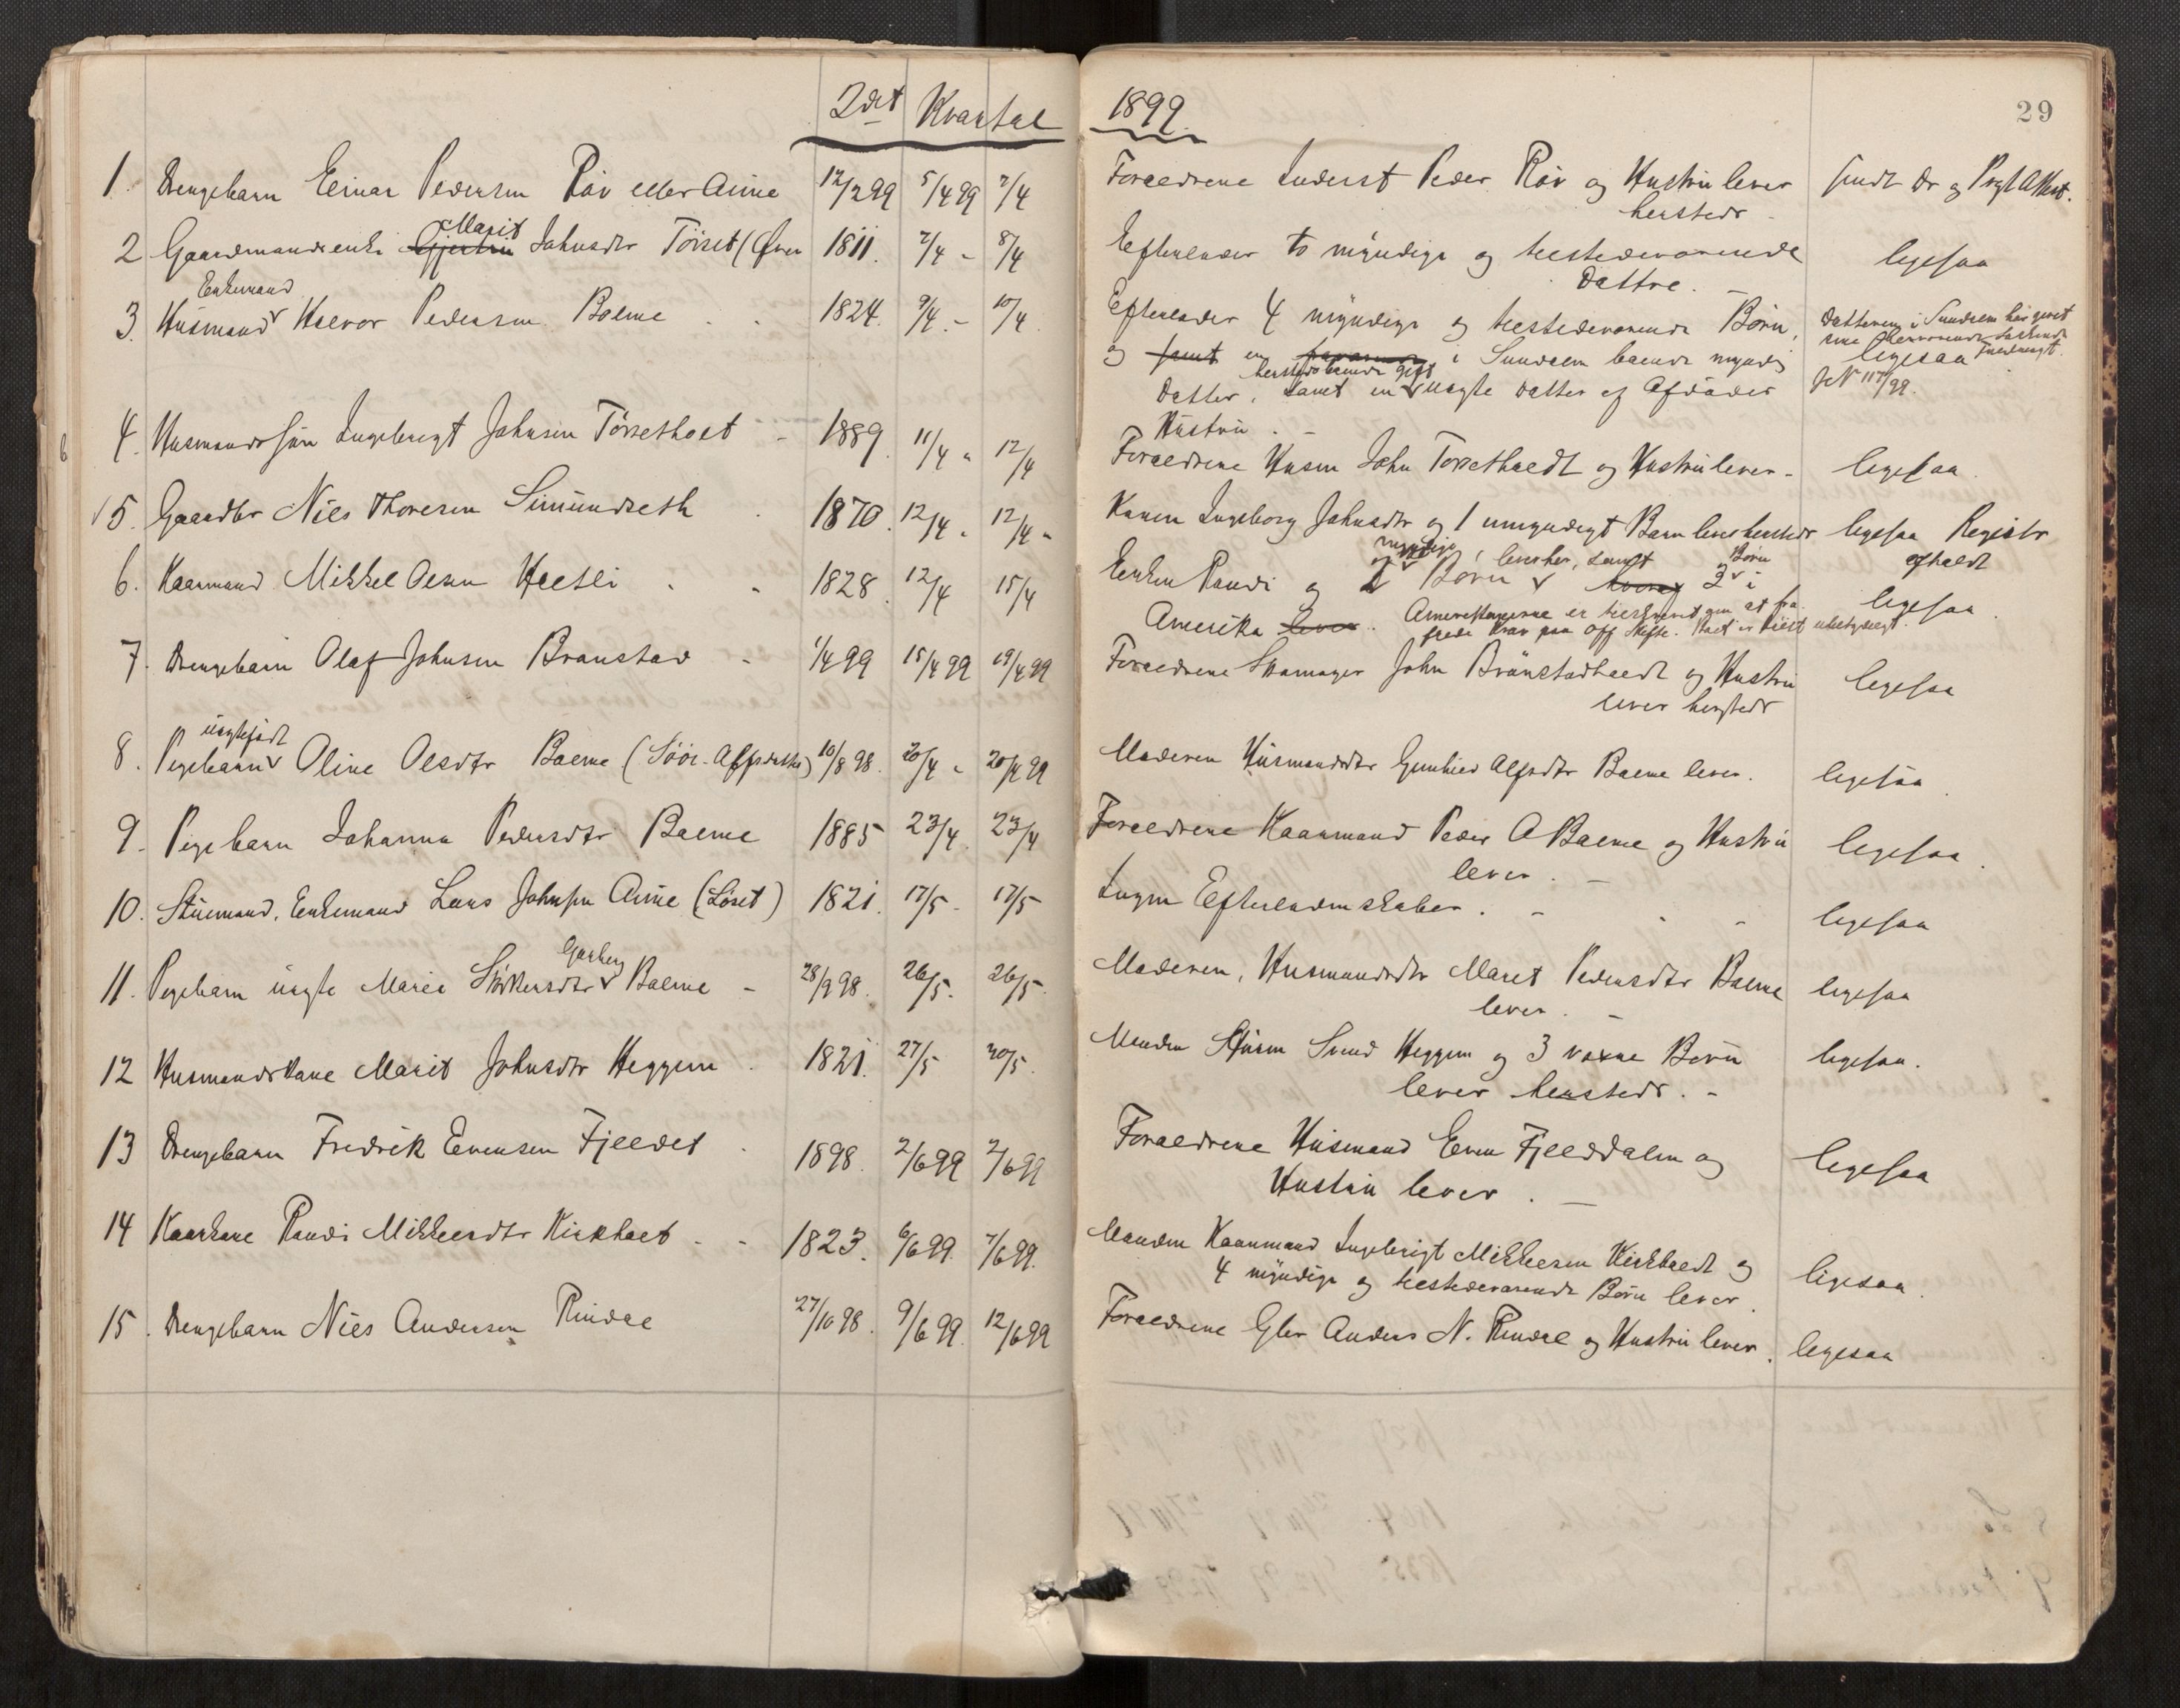 2det Kvartal
1899.
29
1. Drengebarn Einar Pedersen Röv eller Aune 12/2 99 5/4 99 7/4 Forældrene Inderst Peder Röv og Hustru lever hersteds sendt Dr og Prgt Attest.
2 Gaardmandsenke Gjertru Marit Johnsdtr Törset (Øvre 1811. 7/4 - 8/4 Efterlader to myndige og tilstedeværende Døttre. ligesaa
3. Husmand Enkemand Halvor Pedersen Bolme 1824. 9/4 - 10/4 Efterlader 4 myndige og tilstedeværende Børn,
og samt en i Surndalen boende myndig
Datter, samt en hersteds boende gift uægte datter af Afdødes
Hustru.
Datteren i Surndalen har givet
sine Søskende
ligesaa
JN 117/99.
4. Husmandssön Ingebrigt Johnsen Törsetholt 1889. 11/4 " 12/4 Forældrene Husm John Törsetholdt og Hustru lever. ligesaa
5. Gaardbr Nils Thoresen Simundseth 1870. 12/4 " 12/4 " Konen Ingeborg Johnsdtr og 1 umyndigt Barn lever hersteds ligesaa Registr
afholdt
6. Kaarmand Mikkel Olsen Heltli 1828. 12/4 15/4 Enken Randi og 2 myndige Børn lever her, samt hvoraf 2 Børn i
Amerika lever. Amerikanerne er tilskrevet om at fra-
krav paa Off Skifte. Boet er ubetydeligt.
ligesaa
7. Drengebarn Olaf Johnsen Brønstad 1/4 99 15/4 99 19/4 99 Forældrene Skomager John Brönstadholdt og Hustru
lever hersteds
ligesaa
8. Pigebarn uægtefödt Oline Olsdtr Bolme (Söör. 10/8 98. 20/4 " 20/4 99 Moderen Husmandsdtr Gunhild Alfsdtr Bolme lever. ligesaa
9. Pigebarn Johanna Pedersdtr Bolme 1885 23/4. 23/4 Forældrene Kaarmand Peder A Bolme og Hustru
lever.
ligesaa.
10. Stuemand, Enkemand Lars Johnsen Aune (Löset) 1821. 17/5 - 17/5 Ingen Efterladenskaber. ligesaa
11. Pigebarn uægte Marie Störkersdtr Garberg Bolme - 28/9 98. 26/5. 26/5. Moderen, Husmandsdtr Maret Pedersdtr Bolme
lever.
ligesaa
12 Husmandskone Marit Johnsdtr Heggem 1821. 27/5 30/5. Manden Svend Heggem og 3 voxne Børn
lever hersteds.
ligesaa.
13 Drengebarn Fredrik Evensen Fjeldet 1898. 2/6 99 2/6 99 Forældrene Husmand Even Fjelddalen og
Hustru lever.
ligesaa
14 Kaarkone Randi Mikkelsdtr Kirkholt 1823. 6/6 99. 7/6 99. Manden Kaarmand Ingebrigt Mikkelsen Kirkholdt og
4 myndige og tilstedeværende Børn lever.
ligesaa.
15. Drengebarn Nils Andersen Rindal 27/10 98. 9/6 99. 12/6 99 Forældrene Gbr Anders N. Rindal og Hustru lever. ligesaa